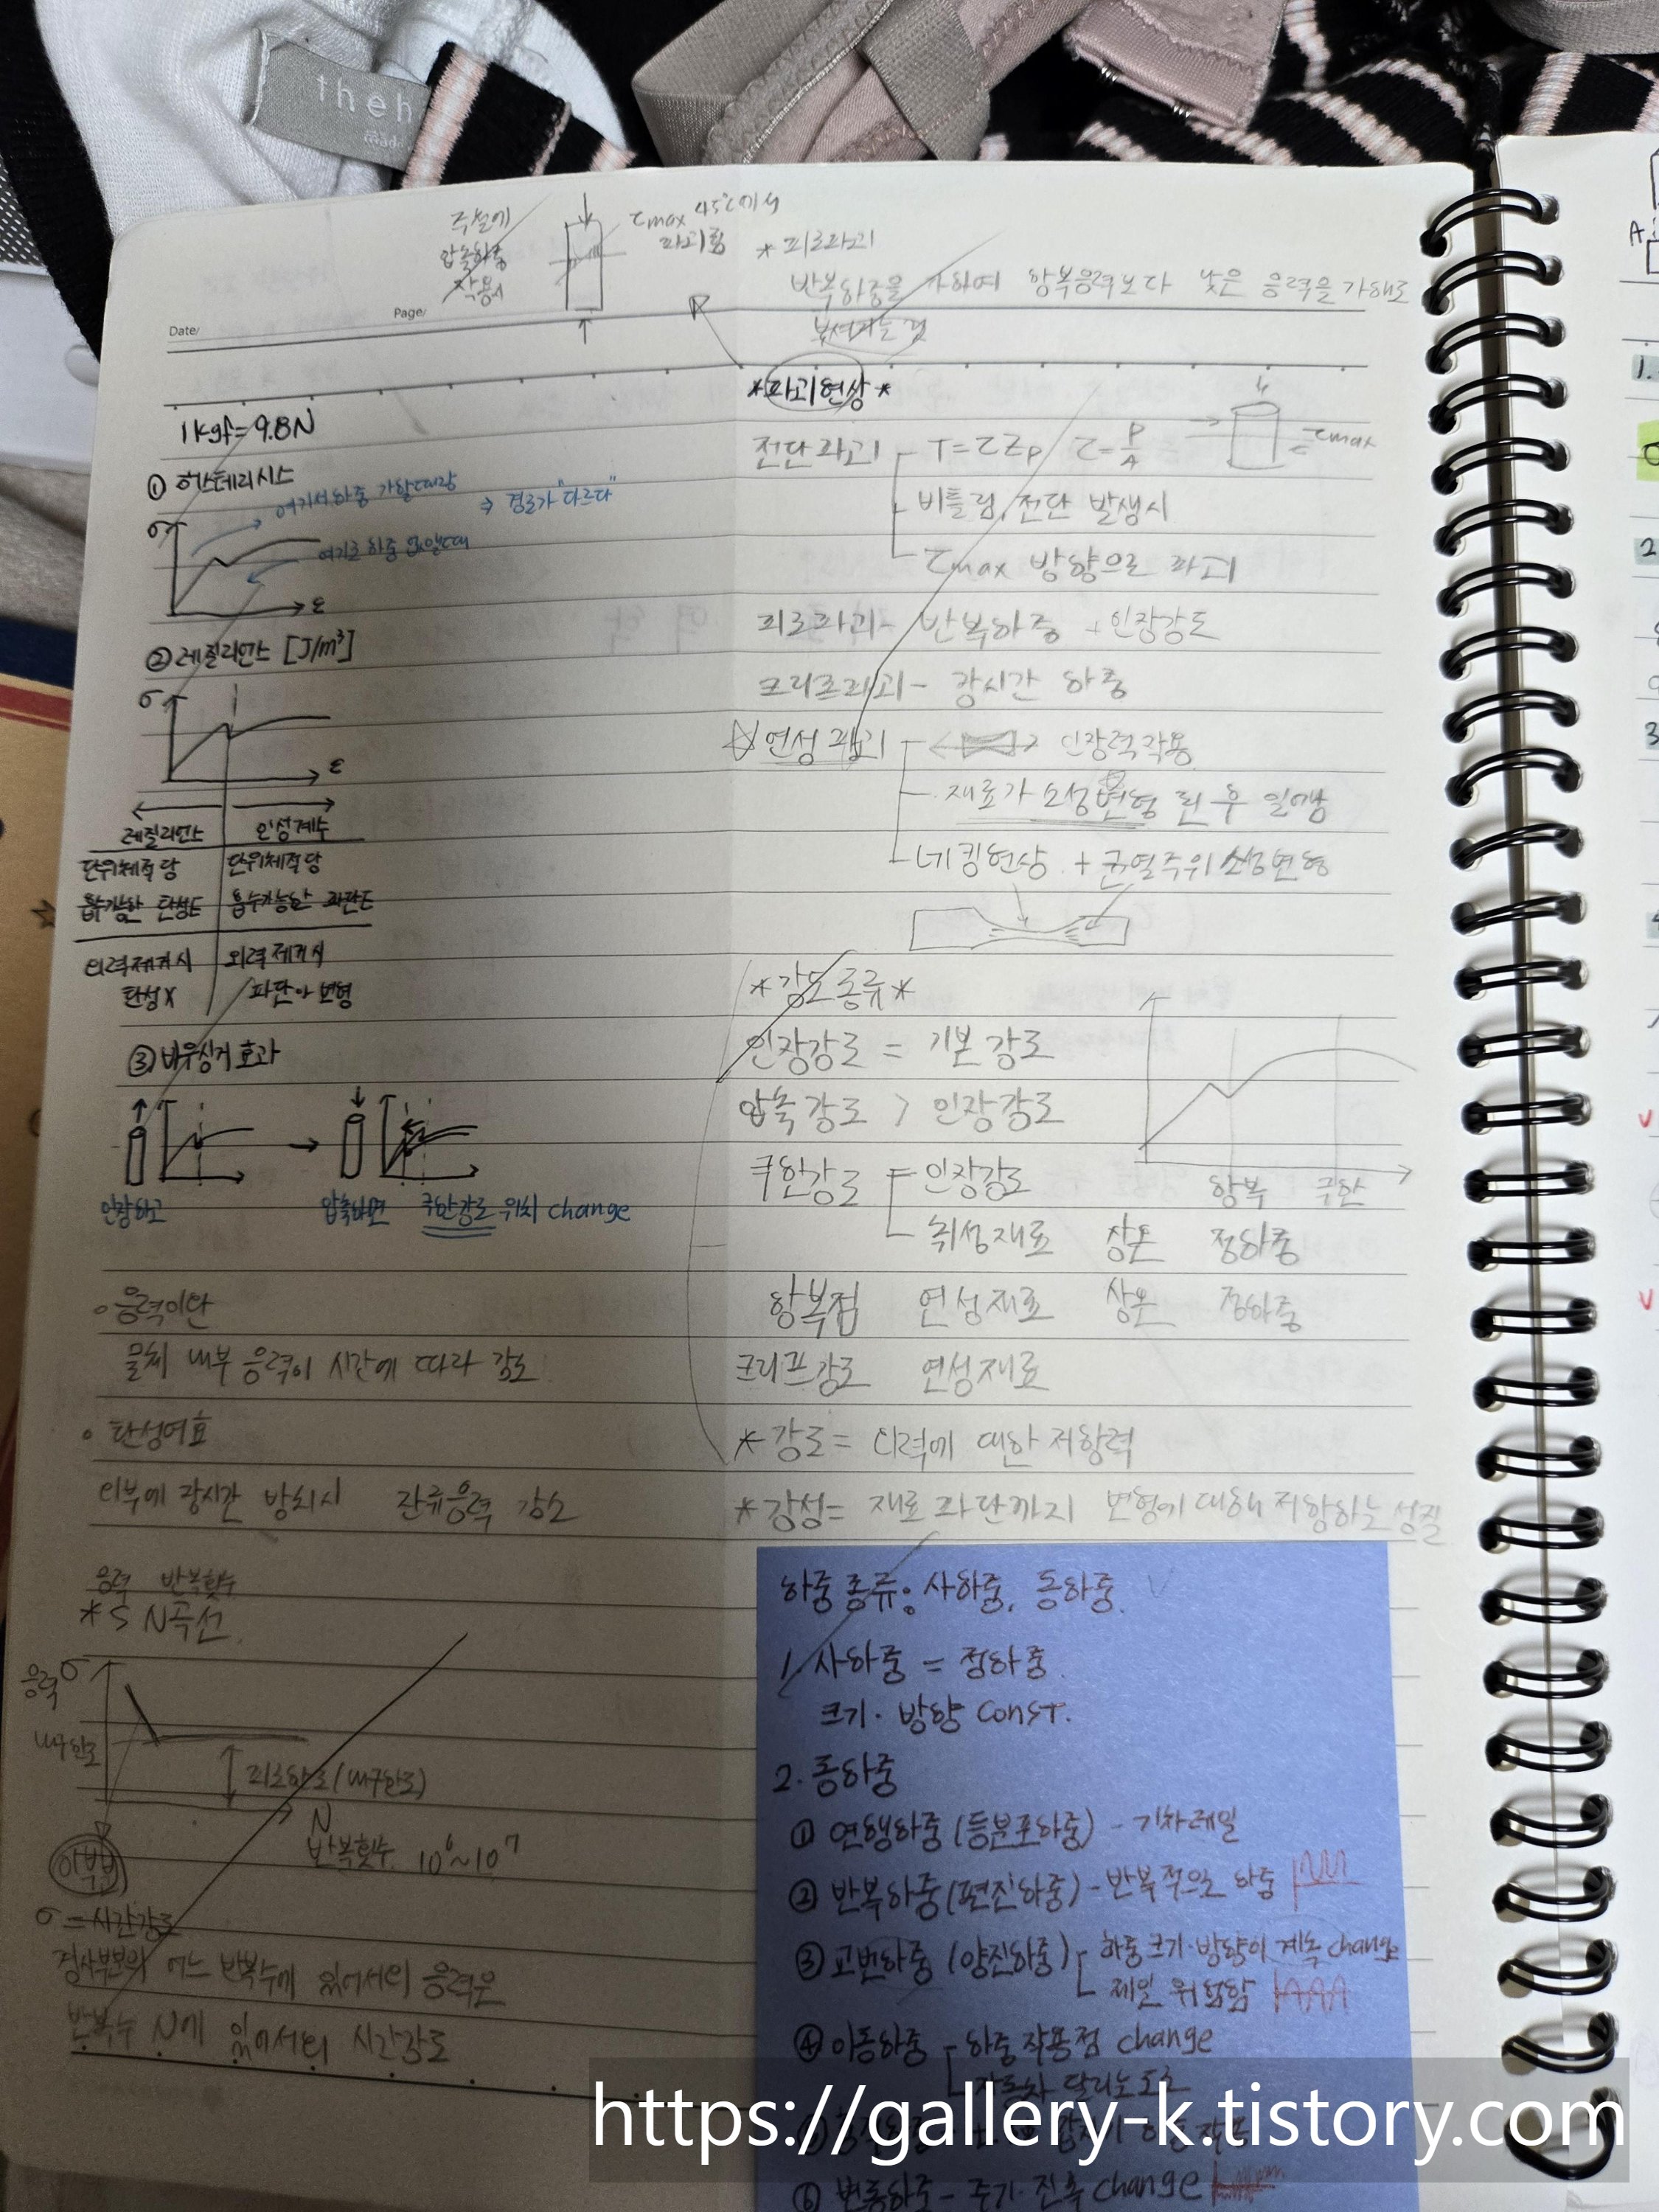 theh
Date/
Page/
주철에
압축하중
작용시
τmax 45°에서
파괴됨
*피로파괴
반복하중을 가하여 항복응력보다 낮은 응력을 가해도
부서지는 것
1kgf=9.8N
① 히스테리시스
여기서 하중 가할때랑
⇒ 경로가 "다르다"
여기로 하중 없앨때
σ
ε
② 레질리언스 [J/m³]
σ
ε
레질리언스
인성계수
단위체적당
단위체적당
흡수가능한 탄성E
흡수가능한 파단E
외력제거시
외력 제거시
탄성X
파단 or 변형
③ 바우싱거 효과
인장하고
압축하면 극한강도 위치 change
응력이완
물체 내부 응력이 시간에 따라 감소
탄성여효
외부에 장시간 방치시 잔류응력 감소
응력 반복횟수
*S N곡선
응력 σ
내구한도
피로한도(내구한도)
N
반복횟수 10⁶~10⁷
이부분
σ=시간강도
경사부분의 어느 반복수에 있어서의 응력은
반복수 N에 있어서의 시간강도
*파괴현상*
전단파괴 T=τZp τ=P/A
τmax
비틀림, 전단 발생시
τmax 방향으로 파괴
피로파괴- 반복하중 + 인장강도
크리프파괴- 장시간 하중
☆연성파괴 인장력작용
재료가 소성변형 된 후 일어남
네킹현상 + 균열주위 소성변형
*강도종류*
인장강도 = 기본강도
압축강도 > 인장강도
극한강도 인장강도
항복 극한
취성재료 상온 정하중
항복점 연성재료 상온 정하중
크리프강도 연성재료
*강도= 외력에 대한 저항력
*강성= 재료 파단까지 변형에 대해 저항하는 성질
하중종류: 사하중, 동하중
1. 사하중 = 정하중
크기·방향 const.
2. 동하중
① 연행하중(등분포하중) - 기차레일
② 반복하중(편진하중) - 반복적인 하중
③ 교번하중 (양진하중) 하중크기·방향이 계속 change
제일 위험함
④ 이동하중 - 하중작용점 change
자동차 달리는 도로
⑥ 변동하중 - 주기·진폭 change
https://gallery-k.tistory.com